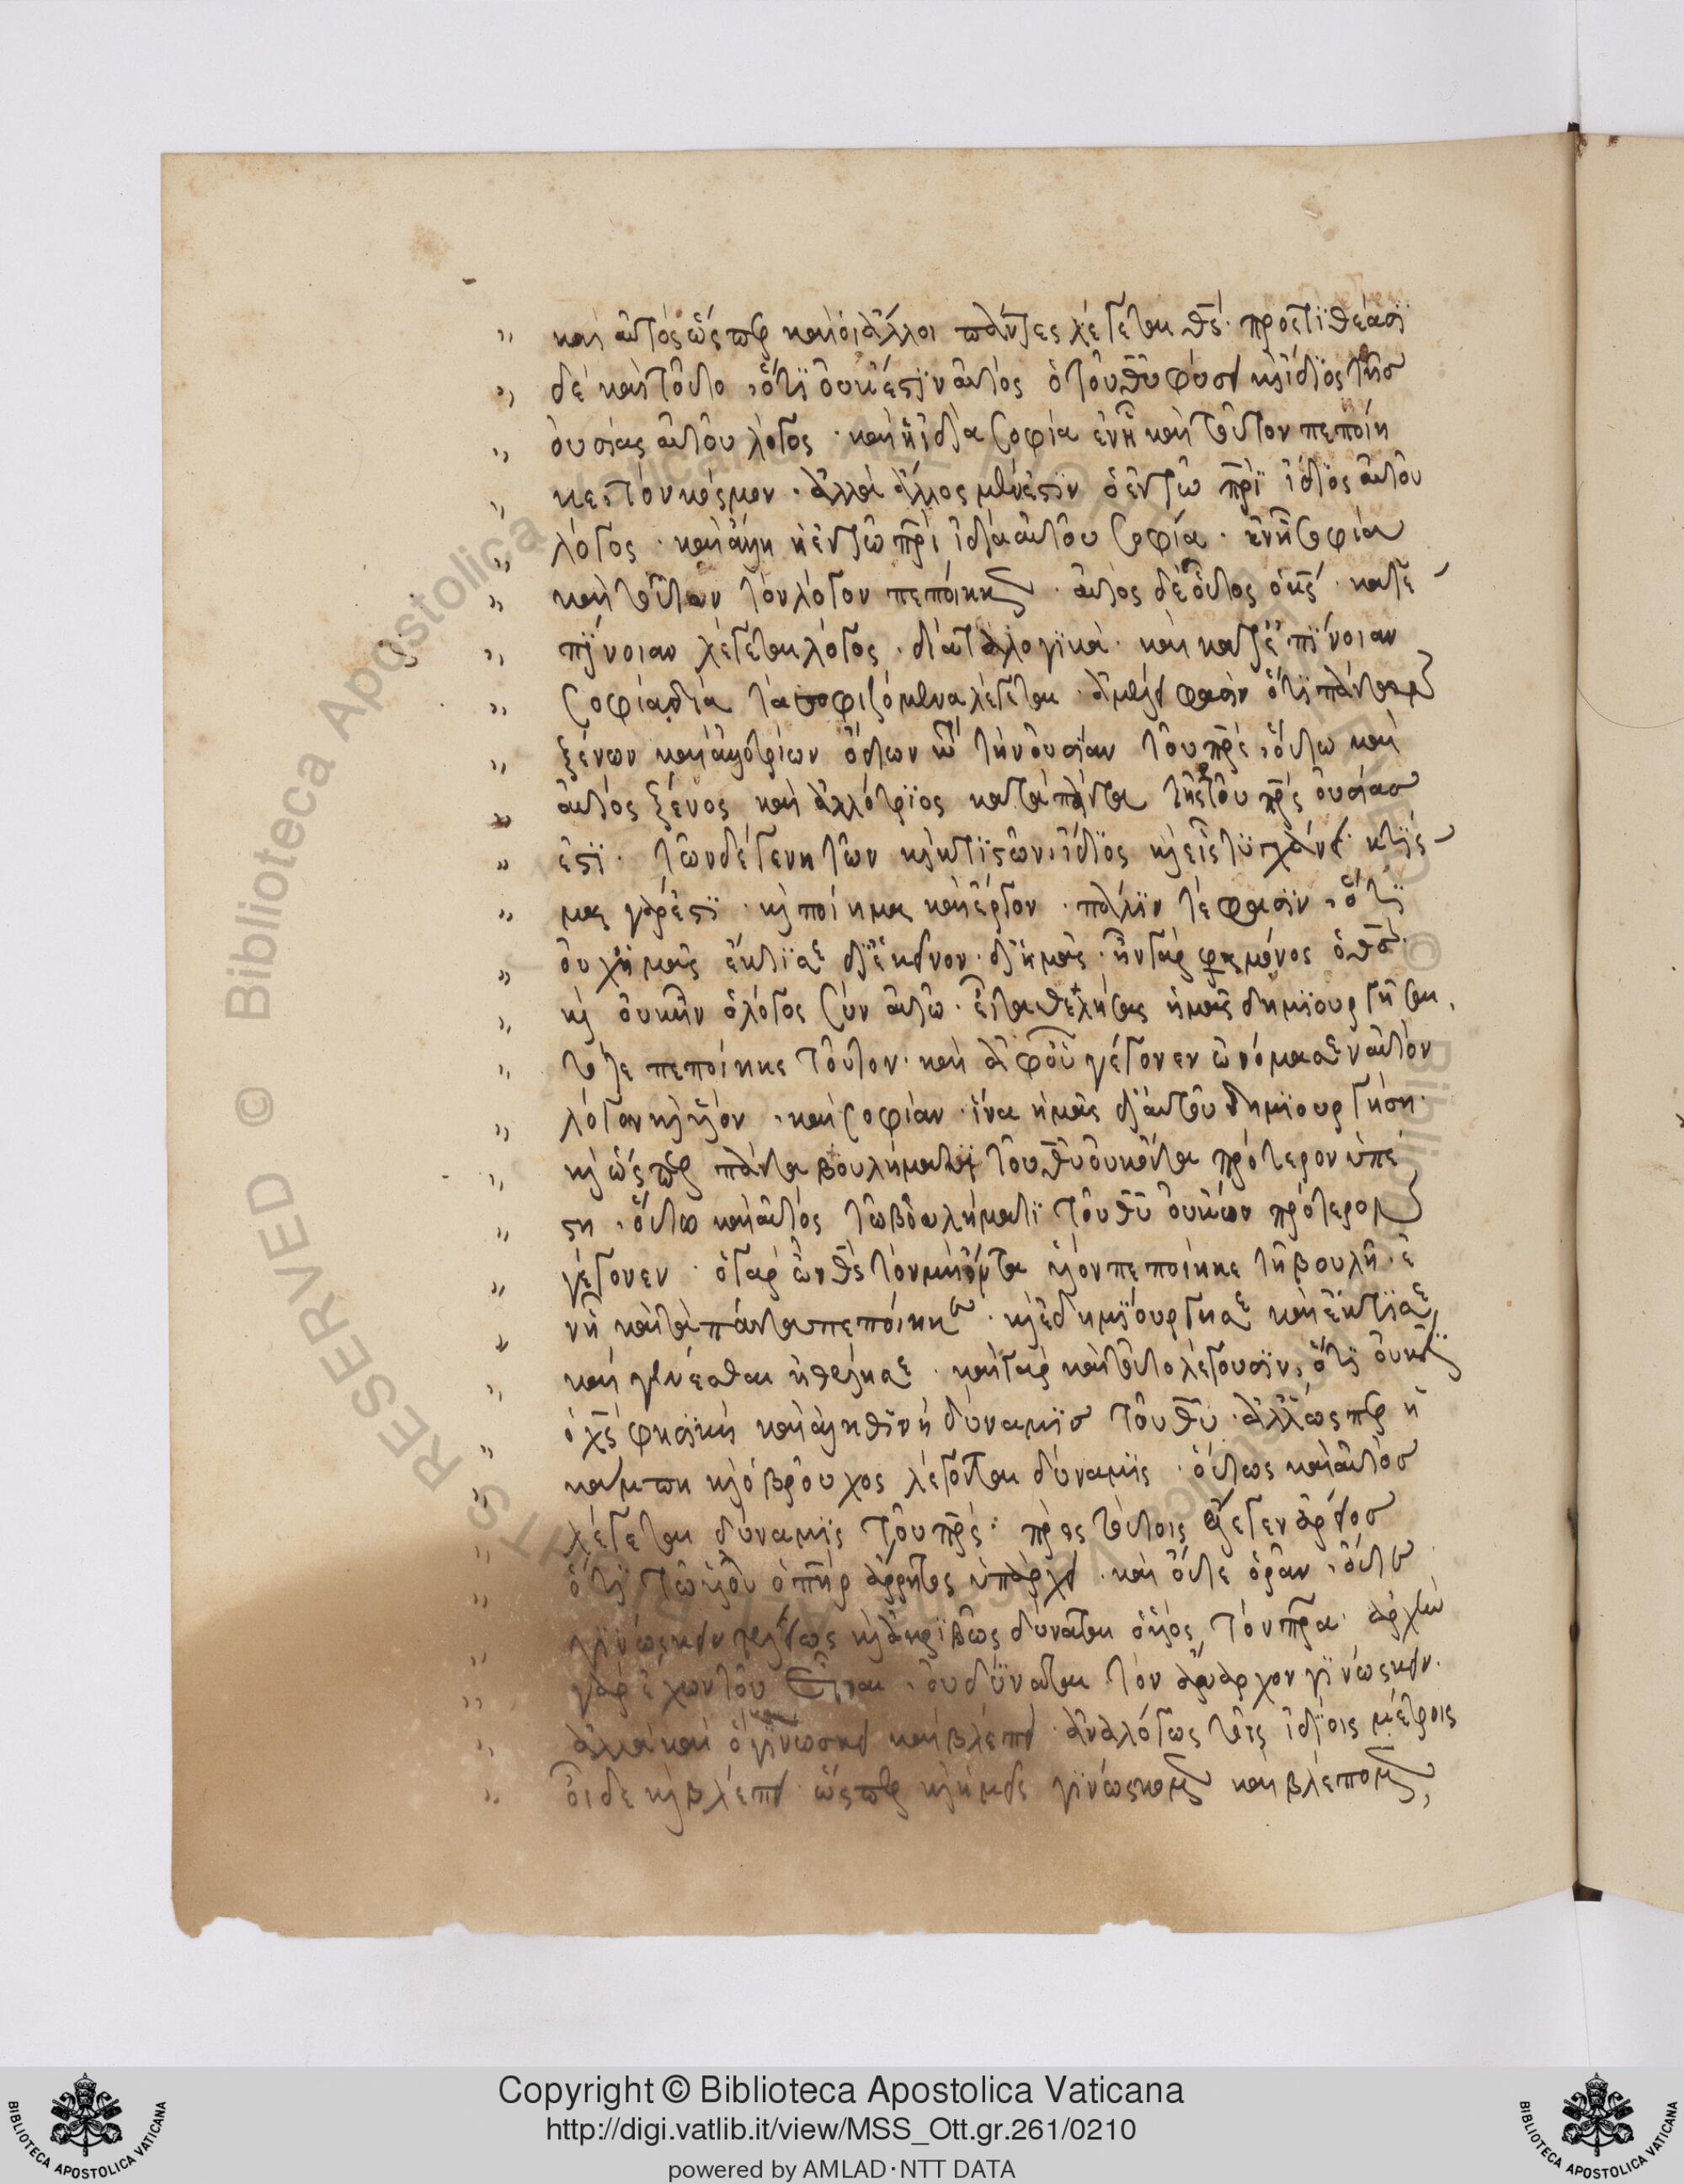 καὶ αὐτὸς ὥσπερ καὶ οἱ ἄλλοι πάντες λέγεται θς· προστιθέασι
δὲ καὶ τοῦτο, ὅτι οὐκ ἔστιν αὐτὸς ὁ τοῦ θυ φύσει κὶ ἴδιος τῆς
οὐσίας αὐτοῦ λόγος· καὶ ἡ ἰδία σοφία ἐν ᾗ καὶ τοῦτον πεποίη
κε τὸν κόσμον· ἀλλὰ ἄλλος μέν ἐστιν ὁ ἐν τῷ πρι ἴδιος αὐτοῦ
λόγος· καὶ ἄλλη ἡ ἐν τῷ πρι ἰδία αὐτοῦ σοφία· ἐν ᾗ σοφία
καὶ τοῦτον τὸν λόγον πεποίηκεν· αὐτὸς δὲ οὗτος ὁ κς· κατ' ἐ
πίνοιαν λέγεται λόγος· διὰ τὰ λογικά· καὶ κατ' ἐπίνοιαν
σοφία διὰ τὰ σοφιζόμενα λέγεται· ἀμέλει φασὶν ὅτι πάντων
ξένων καὶ ἀλλοτρίων ὄντων κατ' τὴν οὐσίαν τοῦ πρς, οὕτω καὶ
αὐτὸς ξένος καὶ ἀλλότριος κατὰ πάντα τῆς τοῦ πρς οὐσίας
ἐστί· τῶν δὲ γενητῶν κὶ κτιστῶν ἴδιος κὶ εἷς τυγχάνει· κτίσ
μα γάρ ἐστι· κὶ ποίημα καὶ ἔργον· πάλιν τέ φασιν, ὅτι
οὐχ ἡμᾶς ἔκτισε δι' ἐκεῖνον· δι' ἡμᾶς· ἦν γὰρ μόνος ὁ θς·
κὶ οὐκ ἦν ὁ λόγος σὺν αὐτῷ· εἶτα θελήσας ἡμᾶς δημιουργῆσαι,
τότε πεποίηκε τοῦτον· καὶ ἀφ' οὗ γέγονεν ὠνόμασεν αὐτὸν
λόγον κὶ υἱὸν, καὶ σοφίαν· ἵνα ἡμᾶς δι' αὐτοῦ δημιουργήσῃ·
κὶ ὥσπερ πάντα βουλήματι τοῦ θυ οὐκ ὄντα πρότερον ὑπέ
στη, οὕτω καὶ αὐτὸς τῷ βουλήματι τοῦ θυ οὐκ ὢν πρότερον
γέγονεν· ὁ γὰρ ὢν θς τὸν μὴ ὄντα υἱὸν πεποίηκε τῇ βουλῇ· ἐ
ν ᾗ καὶ τὰ πάντα πεποίηκε· κὶ ἐδημιούργησε καὶ ἔκτισε,
καὶ γενέσθαι ἠθέλησε· καὶ γὰρ καὶ τοῦτο λέγουσιν, ὅτι οὐκ ἔστιν
ὁ χς φυσικὴ καὶ ἀληθινὴ δύναμις τοῦ θυ· ἀλλ' ὥσπερ ἡ
κάμπη κὶ ὁ βροῦχος λέγονται δύναμις· οὕτως καὶ αὐτὸς
λέγεται δύναμις τοῦ πρς· πρὸς τούτοις ἔλεγεν ἄρειος
ὅτι τῷ υἱῷ ὁ πὴρ ἄρρητος ὑπάρχει· καὶ οὔτε ὁρᾶν, οὔτε
γινώσκειν τελείως κὶ ἀκριβῶς δύναται ὁ υἱὸς τὸν πρα· ἀρχὴν
γὰρ ἔχων τοῦ εἶναι, οὐ δύναται τὸν ἄναρχον γινώσκειν·
ἀλλὰ καὶ ὃ γινώσκει καὶ βλέπει· ἀναλόγως τοῖς ἰδίοις μέτροις
οἶδε κὶ βλέπει· ὥσπερ κὶ ἡμεῖς γινώσκομεν καὶ βλέπομεν,
Copyright © Biblioteca Apostolica Vaticana
http://digi.vatlib.it/view/MSS_Ott.gr.261/0210
powered by AMLAD·NTT DATA